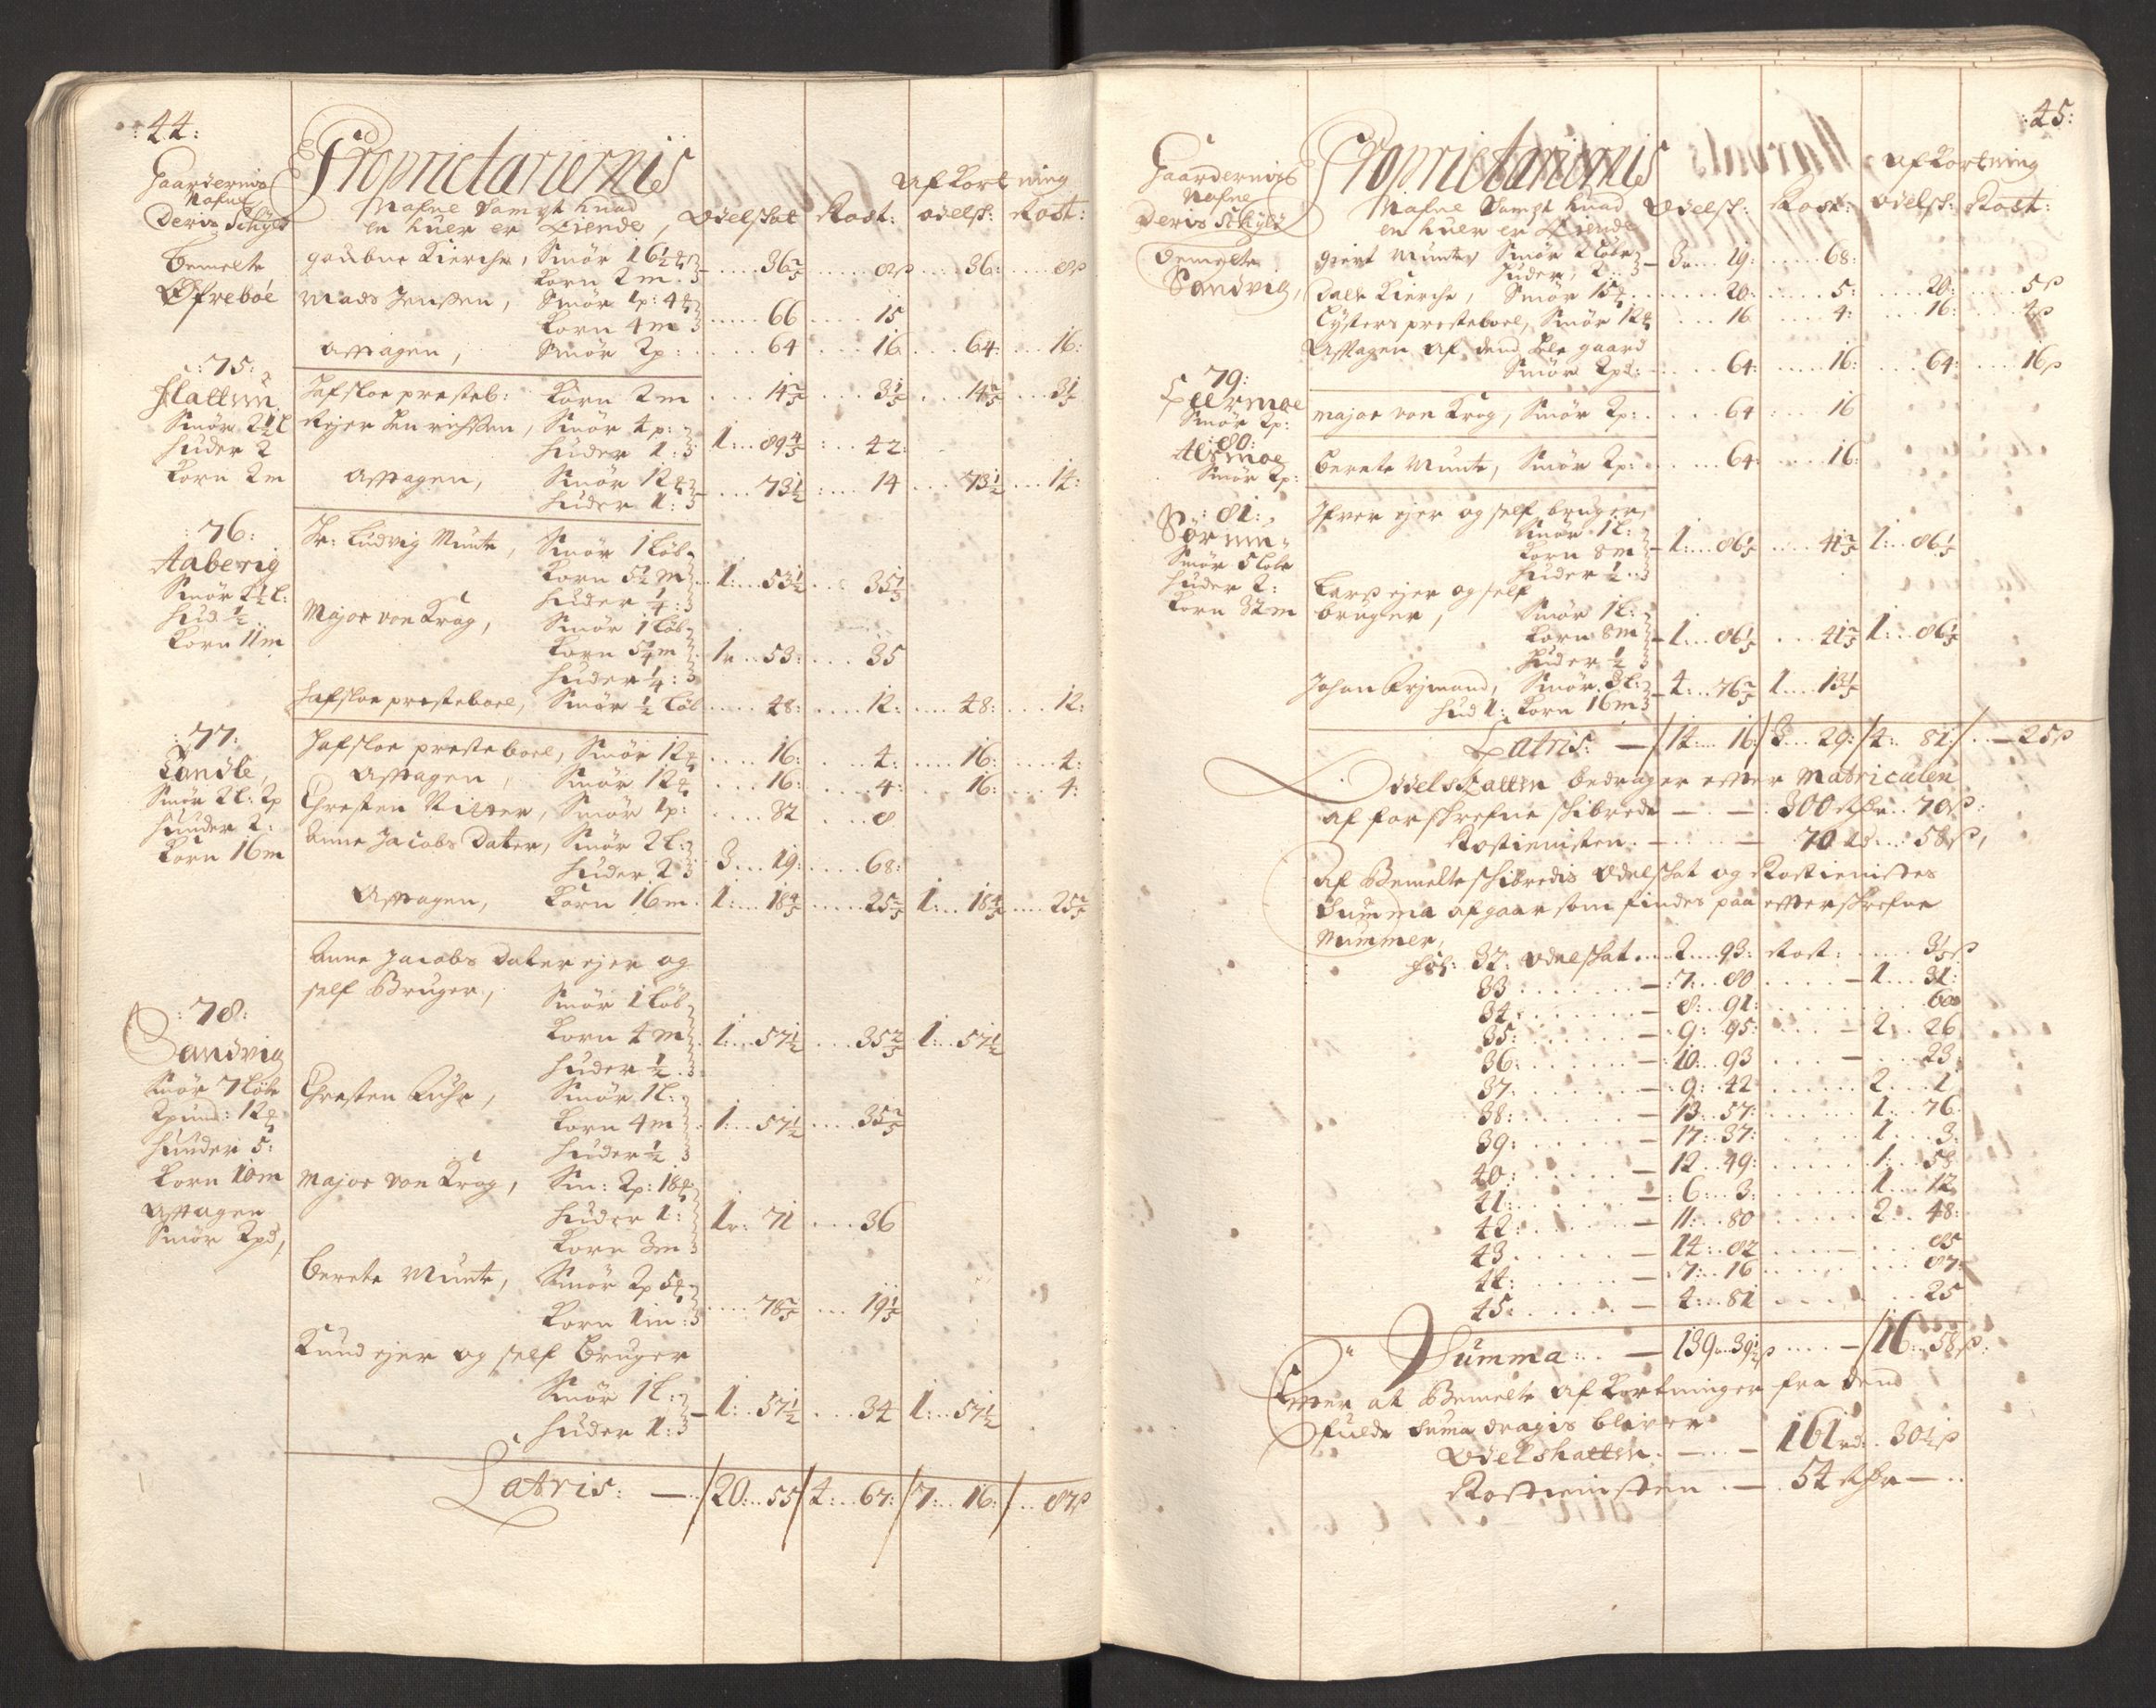 :44:
Gaardernis Nafne Deris Schyld
Proprietariernis
Nafne Sampt huad en huer er Eiende,
Odelskat Rost:
Afkortning
odelsk: Rost:
bemelte Øfreboe
gaubne Kierche, Smør 16½ Korn 2 m. 36 36:
Mads Jenssen, Smør 1p: 4 Korn 4 m 66 15
Afftagen, Smør 2p: 64 16 64: 16:
:75:
flatten
Smør 2½ l
huder 2
Korn 2 m
Hafsloe presteb: Korn 2 m 14⅖ 3⅕ 14⅖ 3⅕
Rejer Henrichssen, Smør 1p: huder 1: 1: 89⅘ : 42:
Afftagen, Smør 12 huder 1: 73½ : 14 73½ 14:
:76:
Aaberig
Smør 2½ l:
hud ½
Korn 11 m
Hr: Ludvig Munte, Smør 1 løb Korn 5½ m huder ¼: 1: 53½ 35⅓
Major von Krag, Smør 1 løb Korn 5½ m huder ¼: 1: 53: 35
Hafsloe presteboel, Smør ½ løb 48: 12: 48: 12:
:77:
Sandle,
Smør 2l: 2p
huuder 2:
Korn 16 m
Hafsloe presteboel, Smør 12 16: 4: 16: 4:
Afftagen, Smør 12 16: 4: 16: 4:
Chresten Ritter, Smør 1p: 32 8
Anne Jacobs Dater, Smør 2l: huder 2 3 19: 68:
Afftagen, Korn 16 m 1: 18⅘ 25⅗ 1: 18⅘ 25⅗
:78:
Sandvig
Smør 7 løbe
2pund: 12
huuder 5:
Korn 10 m
Afftagen
Smør 2pd,
Anne Jacobs Dater ejer og self Bruger, Smør 1 løb Korn 4 m huder ½ 1: 57½ 35⅖ 1: 57½
Chresten Fuhr, Smør 1l: Korn 4 m huder ½ 1: 57½ 35⅖
Major von Krog, Sm: 2p: 18 huder 1: Korn 3m 1: 71 36
Berete Munte, Smør 2p 5 Korn 1m: 78⅖ 19⅕
Knud ejer og self bruger
Smør 1l: huder 1: 1: 57½ 34 1: 57½
Latris: 20: 55 4: 67: 7: 16: 87
:45:
Gaardernis Nafne Deris Schyld
Proprietariernis
Nafne Sampt huad en huer er Eiende
Odelsk: Rost: Afkortning odelsk: Rost:
bemelte Sandvig,
giert Munter Smør 2 løbe huder, 2 3 19: 68:
Dals Kierche, Smør 15 20: 5: 20: 5
Lysters presteboel, Smør 12 16 4: 16: 4
Afftagen af dend hele gaard
Smør 2pd: 64: 16: 64: 16
79:
Smør 2p:
major von Krog, Smør 2p: 64 16
:80:
Almoe
Smør 2p:
Berete Munte, Smør 2p: 64: 16:
:81:
Sørum
Smør 5 løbe
huder 2:
Korn 32 m
Ifver ejer og self bruger,
Smør 1l: Korn 8 m huder ½ 1: 86⅕ 41⅗ 1: 86⅕
Lars ejer og self bruger, Smør 1l: Korn 8 m huder ½ 1: 86⅕ 41⅗ 1: 86⅕
Johan Frimand, Smør 3l: hud 1: Korn 16 m 4: 76⅖ 1 13⅕
Latris: 14: 16: 3 29: 4: 81 25
Odelskatten bedrager effter Matriculen
af forschrefne schibrede 300 70
Rostienisten 70 58,
Af Bemelte schibredis Odelskat og Rostienistes
Summa afgaar som findes paa effterschrefne
Nummer,
fol: 32: Odelskat 2 93: Rost: 3⅕
33: 7: 80 1 31:
34: 8: 91: 60
35: 9: 95: 2 26
36: 10: 93 23:
37: 9: 42 2 1
38: 13: 57: 1: 76
39: 17: 37: 1 3:
40: 12 49: 1: 58
41: 6: 3: 1 12
42: 11: 80 2 48:
43 14: 82 85
44: 7: 16 87:
45: 4: 81 25
Summa: 139 39½ 16: 58
Effter at Bemelte Afkortninger fra dend
fulde suma dragis blifver
Odelshatten: 161 rd: 30½
Rostienisten 54